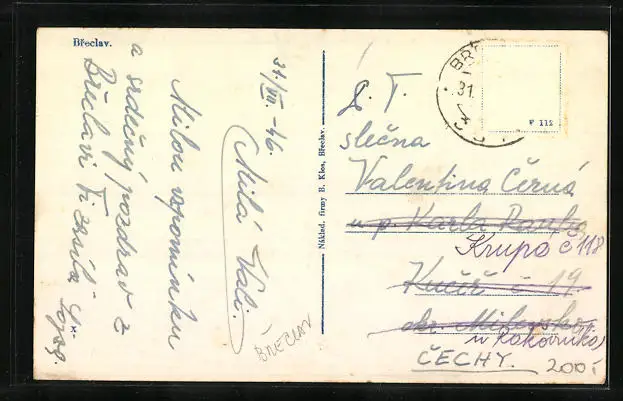 Břeclav.
31./VII. -46.
Milá Vali.
Milou vzpomínku
a srdečný pozdrav z
Břeclavi Ti zasílá
Náklad. firmy B. Klos, Břeclav.
BŘECLAV
31.
F 112
T.
slečna
Valentina Černá
u p. Karla
Krupá č 118
Kučíř č 19.
okr. Milevsko
u Rakovníka
ČECHY.
200